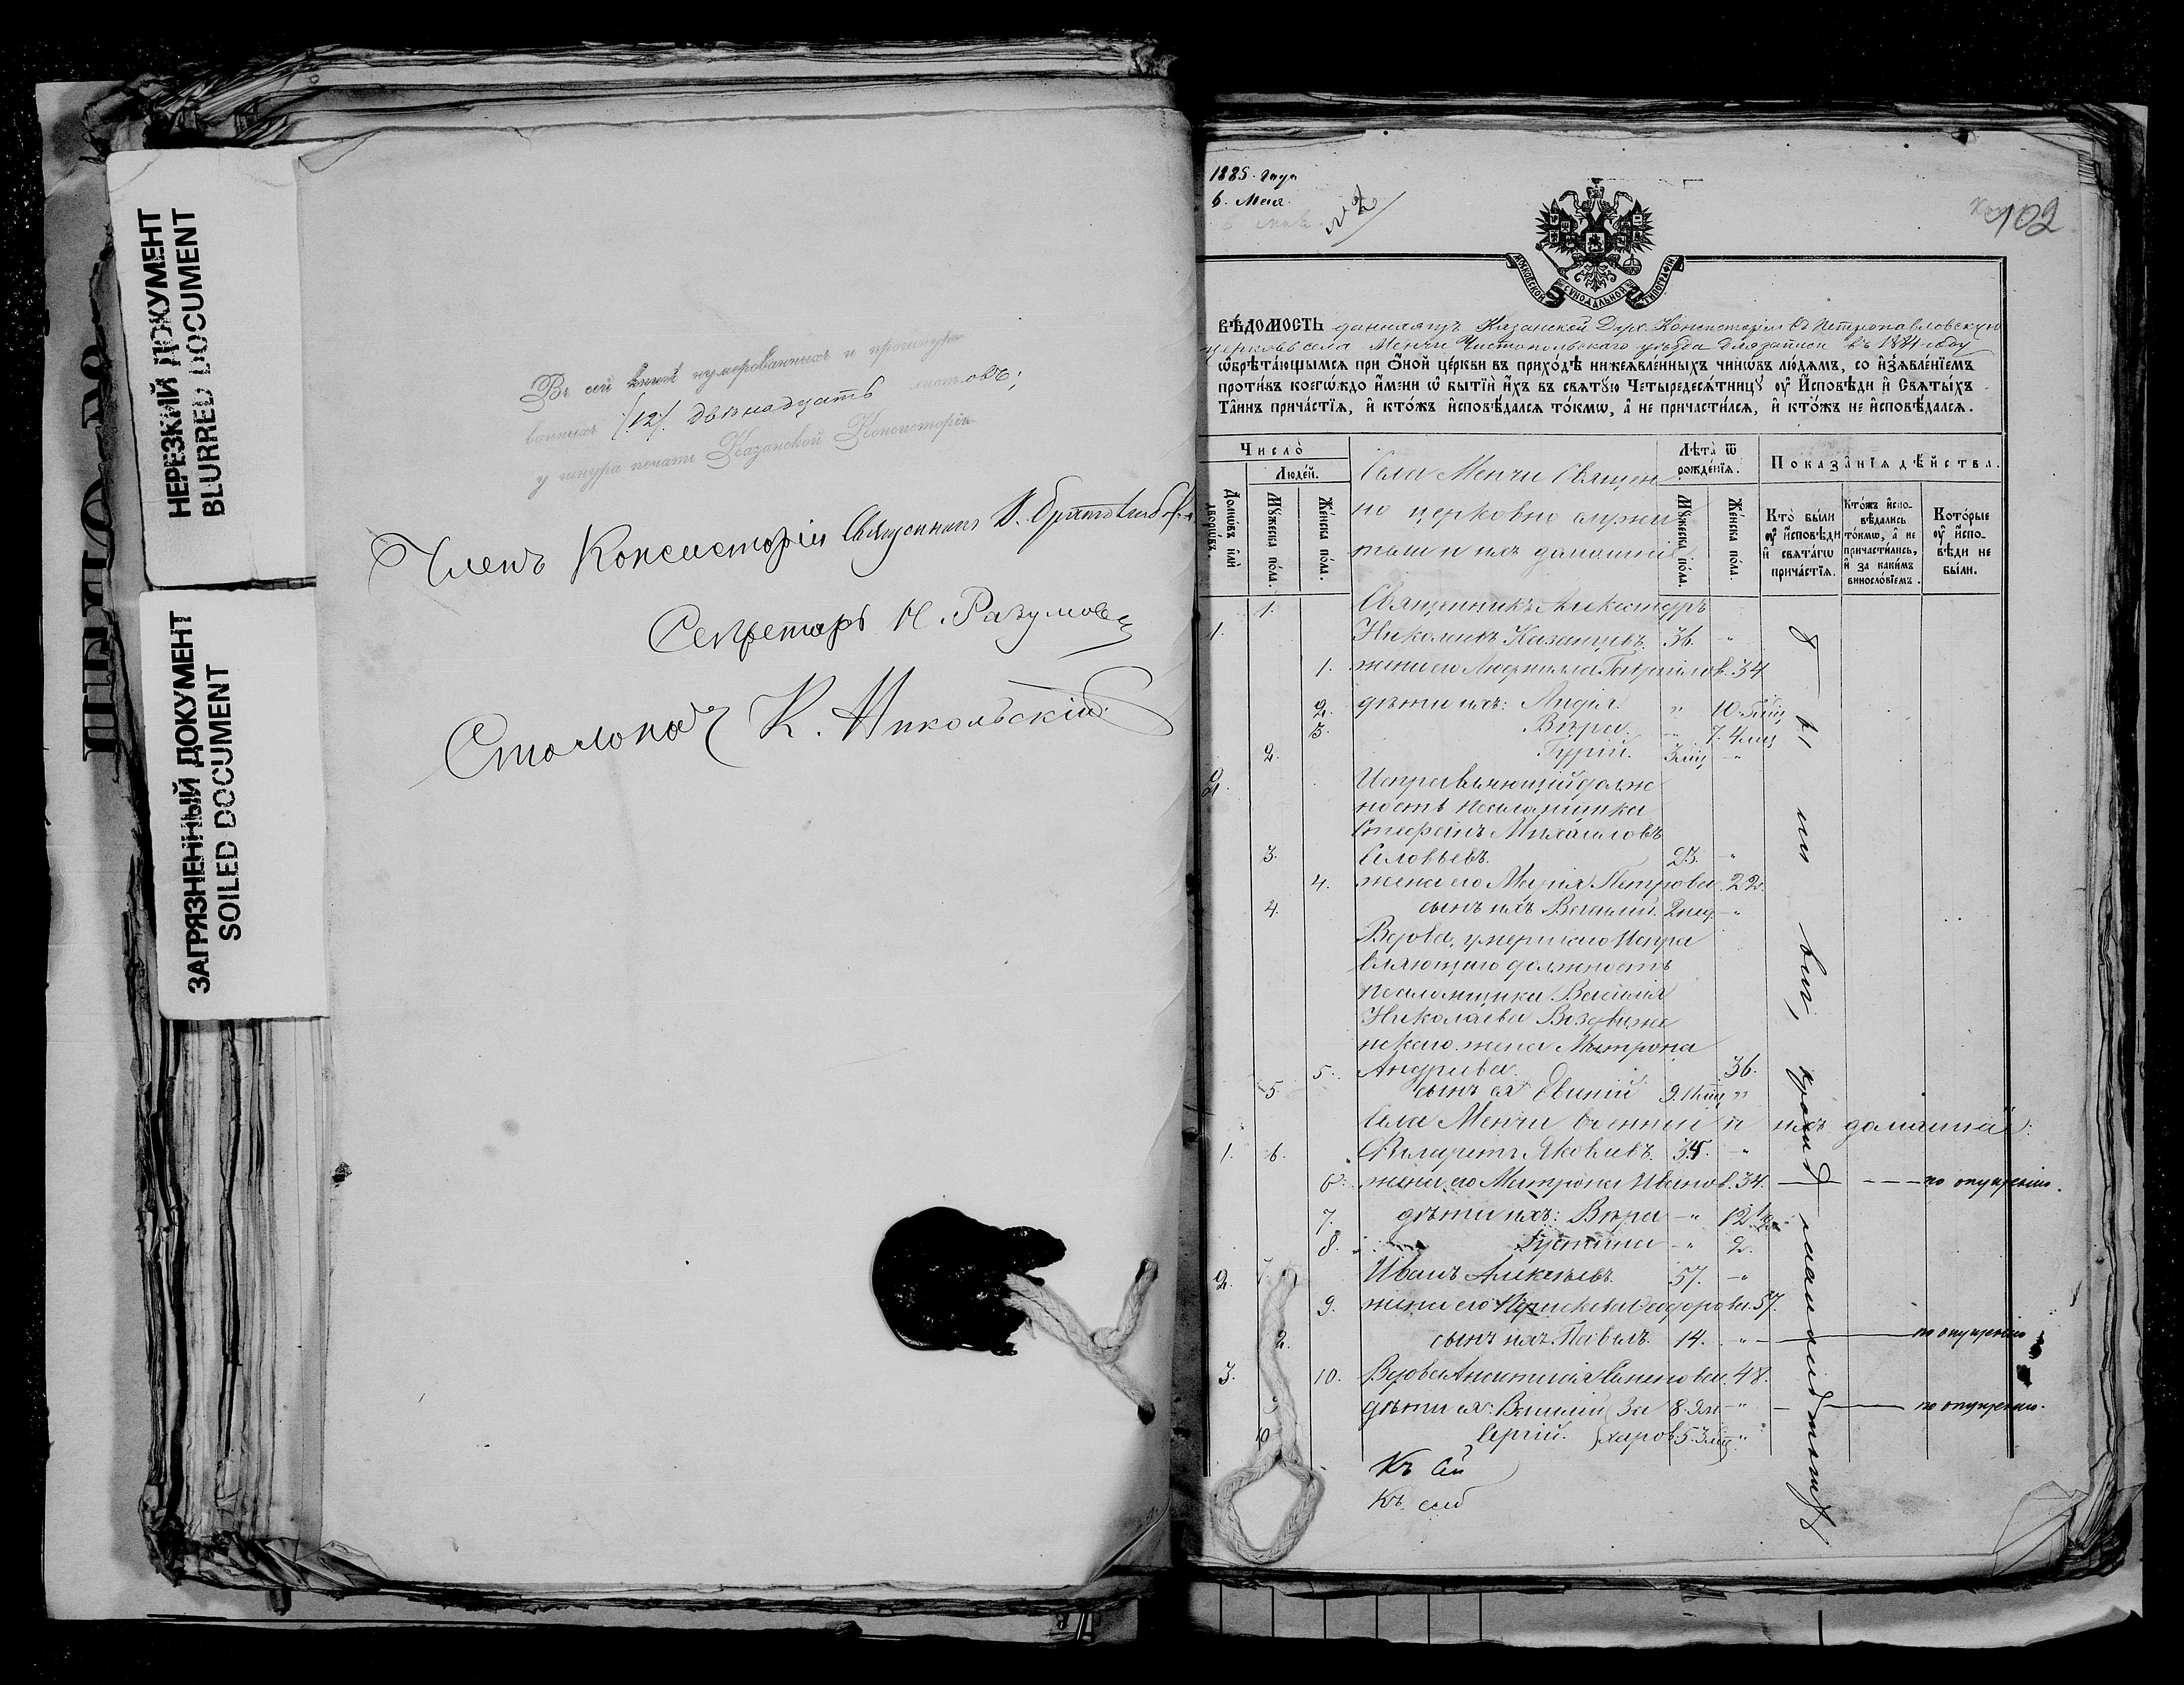 НЕРЕЗКИЙ ДОКУМЕНТ
BLURRED DOCUMENT
ЗАГРЯЗНЕННЫЙ ДОКУМЕНТ
SOILED DOCUMENT
Въ сей книгѣ нумерованныхъ и прошнуро-
ванныхъ /12/ двѣнадцать листовъ;
у шнура печать Казанской Консисторіи
Членъ Консисторіи Священникъ
Секретарь Н. Разумовъ
Столонач К. Никольскій
1885 года
6. Мая.
№ 2
102
МОСКОВСКОЙ СѴНОДАЛЬНОЙ ТИПОГРАФІИ
ВѢ́ДОМОСТЬ данная изъ Казанской Дух. Консисторіи въ Петропавловскую
церковь села Менчи Чистопольскаго уѣзда для записи въ 1884 году
ѡ҆брѣта́ющымсѧ при ѻ҆́ной це́ркви въ прихо́дѣ нижеѧвле́нныхъ чинѡ́въ лю́дѧмъ, со и҆з̾ѧвле́нїемъ
проти́въ коегѡ́ждо и҆́мени ѡ҆ бытїѝ и҆́хъ въ свѧтꙋ́ю Четыредесѧ́тницꙋ ᲂу҆ И҆сповѣ́ди и҆ Свѧты́хъ
Та́инъ прича́стїѧ, и҆ кто́жъ и҆сповѣ́далсѧ то́кмѡ, а҆ не причасти́лсѧ, и҆ кто́жъ не и҆сповѣ́далсѧ.
Число̀
Людей.
Домѡ́въ и҆лѝ дворѡ́въ.
Мꙋ́жеска по́ла.
Же́нска по́ла.
Села Менчи Священ
но церковно служи
тели и ихъ домашніе
Лѣ́та ѿ рожде́нїѧ.
Мꙋ́жеска по́ла.
Же́нска по́ла.
Показа́нїѧ дѣ́йства.
Кто̀ бы́ли ᲂу҆ и҆сповѣ́ди и҆ свѧта́гѡ прича́стїѧ.
Кто́жъ и҆спо-вѣ́дались то́кмѡ, а҆ не причасти́лись, и҆ за каки́мъ винослѡ́вїемъ.
Кото́рые ᲂу҆ и҆спо-вѣ́ди не бы́ли.
1. Священникъ Александръ
1. Николаевъ Казанцевъ. 36. "
1. жена его Людмилла Гавріилов. 34
2. дѣти ихъ: Лидія. " 10.
3. Вѣра. " 7. 4 мц
2. Гурій. 3 мц "
2. Исправляющій долж
ность псаломщика
Стефанъ Михаиловъ
3. Соловьевъ. 23. "
4. жена его Марія Петрова 22.
4. сынъ ихъ Василій. 2 нед. "
Вдова, умершаго Испра
вляющаго должность
псаломщика Василія
Николаева Воздвиже
нскаго жена Матрона
5. Андреева. 36.
5. сынъ ея Евгеній 9. "
Села Менчи военніи и ихъ домашніи:
1. 6. Филаретъ Яковлевъ. 35. "
6. жена его Матрона Иванов. 34. — — по опущенію.
7. дѣти ихъ: Вѣра " 12
8. Іустина " 2.
2. Иванъ Алексѣевъ. 57. "
9. жена его Параскева Ѳеодорова. 57.
сынъ ихъ Павелъ. 14. " — по опущенію
3. 10. Вдова Анастасія Семенова. 48.
дѣти ея: Василій За 8. " — по опущенію.
10 Сергій. харов. 5. 3 мц "
Къ сей
Къ сей
кромѣ малолѣтнихъ